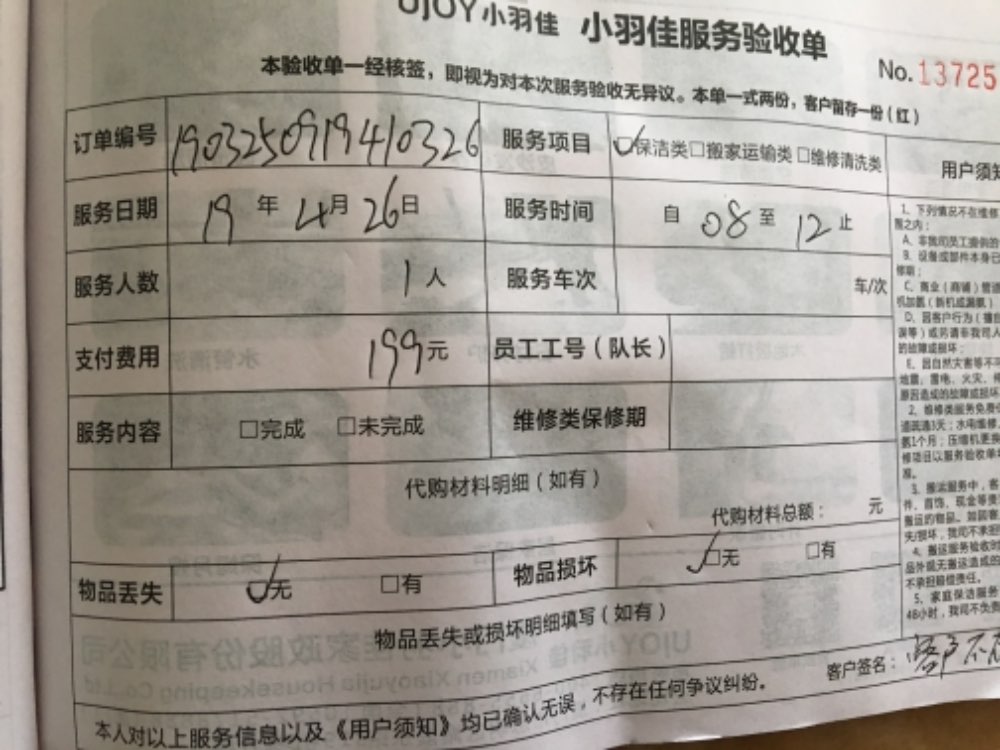 UJOY小羽佳 小羽佳服务验收单
No.13725
本验收单一经核签，即视为对本次服务验收无异议。本单一式两份，客户留存一份（红）
订单编号 1903250919410326 服务项目 保洁类□搬家运输类□维修清洗类
服务日期 19年4月26日 服务时间 自08至12止
服务人数 1人 服务车次 车/次
支付费用 199元 员工工号（队长）
服务内容 □完成 □未完成 维修类保修期
代购材料明细（如有）
代购材料总额： 元
物品丢失 ☑无 □有 物品损坏 ☑无 □有
物品丢失或损坏明细填写（如有）
客户签名：客户不
本人对以上服务信息以及《用户须知》均已确认无误，不存在任何争议纠纷。
用户须知
1、下列情况不在维修
围之内：
A、非我司员工提供的
B、设备或部件本身已
修期；
C、商业（商铺）管道
机加氟（新机或漏氟）
D、因客户行为（擅自
误等）或另请非我司人
的故障或损坏；
E、因自然灾害等不可
地震、雷电、火灾、
原因造成的故障或损坏
2、维修类服务免费
道疏通3天；水电维修
氟1个月；压缩机更换
修项目以服务验收单
准。
3、搬运服务中，客
件、首饰、现金等贵
搬运的物品。如因客
失/损坏，我司不承担
4、搬运服务验收时
品外观无搬运造成的
不承担赔偿责任。
5、家庭保洁服务
48小时，我司不负责
UJOY小羽佳
家政股份有限公司
Xiamen Xiaoyujia Housekeeping Co.,Ltd